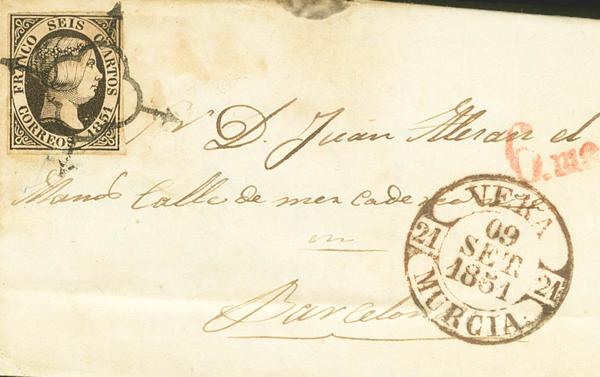 FRANCO SEIS CUARTOS
CORREOS 1851
Sr. D. Juan el
Calle de mercaderes
en
Barcelona
VERA
09
SET
1851
21 21
MURCIA.